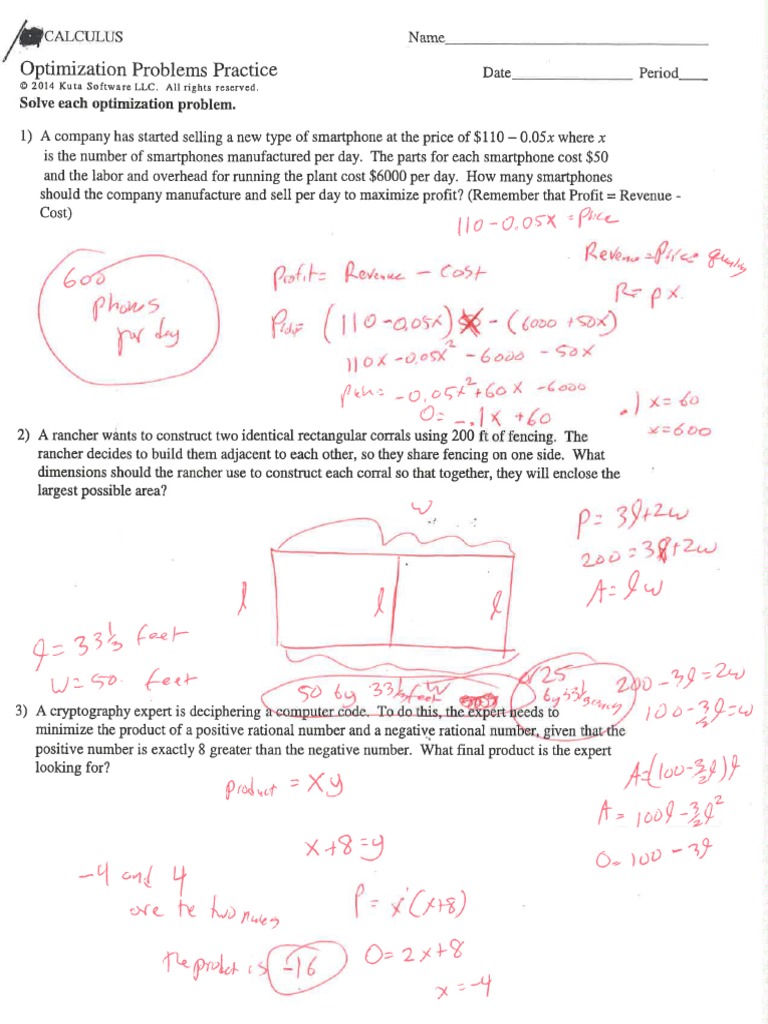 CALCULUS
Name
Optimization Problems Practice
Date Period
© 2014 Kuta Software LLC. All rights reserved.
Solve each optimization problem.
1) A company has started selling a new type of smartphone at the price of $110 – 0.05x where x
is the number of smartphones manufactured per day. The parts for each smartphone cost $50
and the labor and overhead for running the plant cost $6000 per day. How many smartphones
should the company manufacture and sell per day to maximize profit? (Remember that Profit = Revenue -
Cost)
110-0.05x = Price
Revenue = Price
R = px
600
phones
per day
Profit = Revenue - Cost
(110-0.05x) - (6000 + 50x)
110x - 0.05x² - 6000 - 50x
= -0.05x² + 60x - 6000
0 = -.1x + 60
.1x = 60
x = 600
2) A rancher wants to construct two identical rectangular corrals using 200 ft of fencing. The
rancher decides to build them adjacent to each other, so they share fencing on one side. What
dimensions should the rancher use to construct each corral so that together, they will enclose the
largest possible area?
w
l l l
P = 3l + 2w
200 = 3l + 2w
A = lw
l = 33⅓ feet
w = 50 feet
w
50 by 33⅓ feet
25
by 33⅓
200 - 3l = 2w
100 - 3/2 l = w
3) A cryptography expert is deciphering a computer code. To do this, the expert needs to
minimize the product of a positive rational number and a negative rational number, given that the
positive number is exactly 8 greater than the negative number. What final product is the expert
looking for?
A = (100 - 3/2 l) l
A = 100l - 3/2 l²
0 = 100 - 3l
Product = xy
x + 8 = y
-4 and 4
are the two
P = x(x+8)
0 = 2x + 8
x = -4
the product is -16